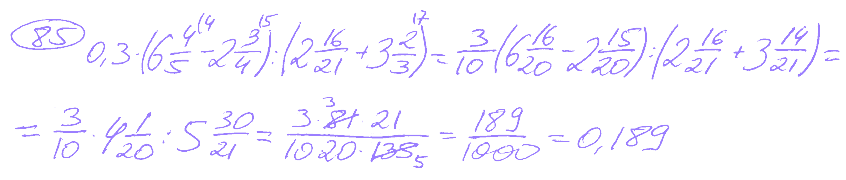 85 0,3·(6 4/5 - 2 3/4):(2 16/21 + 3 2/3) = 3/10 (6 16/20 - 2 15/20):(2 16/21 + 3 14/21) =
= 3/10 · 4 1/20 : 5 30/21 = 3·81 21 / 10 20·135 = 189/1000 = 0,189